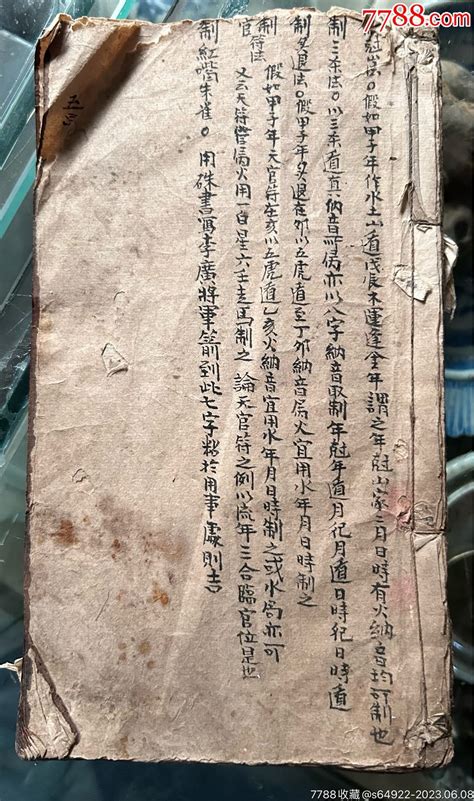 7788.com
尅炭。假如甲子年作水土山遁戊辰木運逢金年謂之年尅山家二月日時有火納音均可制也
制三杀法。以三杀遁真納音所属亦以八字納音取制年尅年遁月尅月遁日時尅日時遁
制歹退法。假甲子年歹退在卯以五虎遁至丁卯納音属火宜用水年月日時制之
制官符法 假如甲子年天官符在亥以五虎遁乙亥火納音宜用水年月日時制之或水局亦可
又云天符管局火用一白星六壬走馬制之 論天官符之例以流年三合臨官位是也
制紅嘴朱雀。用硃書寫李廣將軍箭到此七字粘於用事處則吉
7788收藏@s64922-2023.06.08